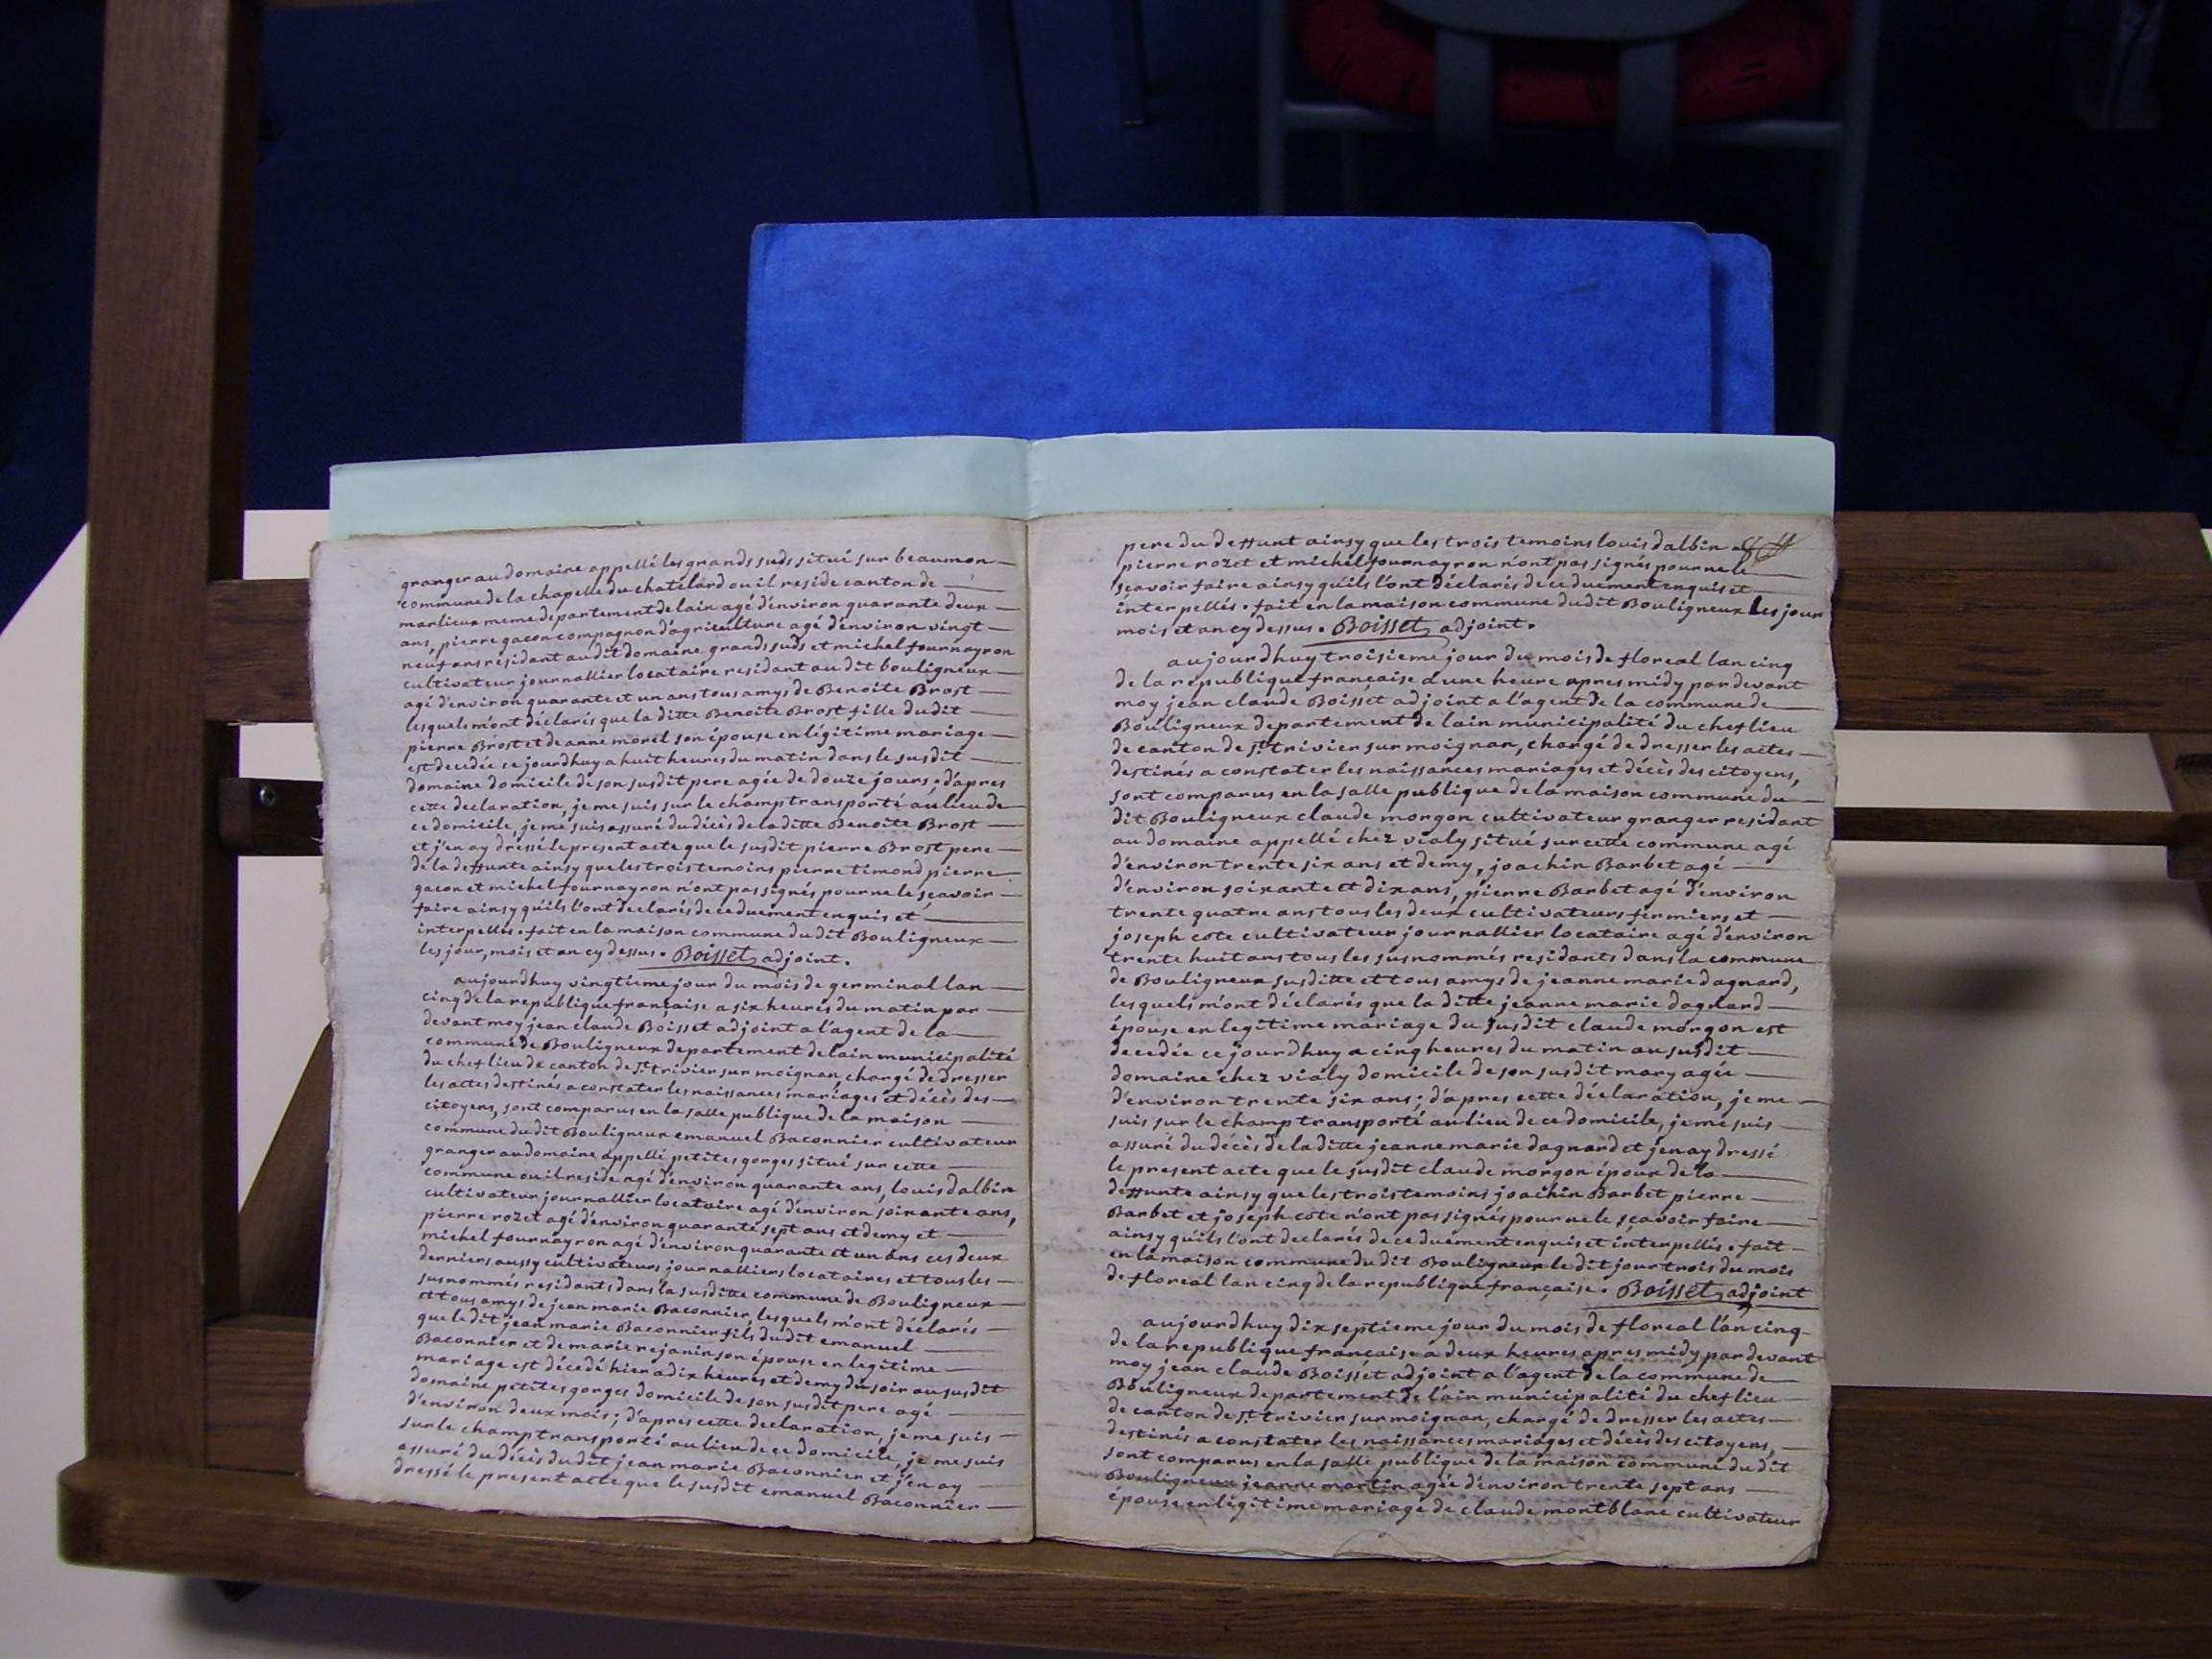 granger au domaine appellé les grands suds situé sur beaumon
commune de la chapelle du chatelard ou il reside canton de
marlieux meme departement de lain agé d'environ quarante deux
ans, pierre gacon compagnon d'agriculture agé d'environ vingt
neuf ans residant audit domaine grands suds et michel fournayron
cultivateur journallier locataire residant au dit bouligneux
agé d'environ quarante et un ans tous amys de Benoite Brost
lesquels m'ont déclarés que la ditte Benoite Brost fille dudit
pierre Brost et de anne morel son épouse en légitime mariage
est decedée ce jourdhuy a huit heures du matin dans le susdit
domaine domicile de son susdit pere agée de douze jours; d'apres
cette declaration, je me suis sur le champ transporté au lieu de
ce domicile, je me suis assuré du décès de la ditte Benoite Brost
et j'en ay dressé le present acte que le susdit pierre Brost pere
de la deffunte ainsy que les trois temoins pierre timond pierre
gacon et michel fournayron n'ont pas signés pour ne le sçavoir
faire ainsy qu'ils l'ont declarés de ce duement enquis et
interpellés. fait en la maison commune dudit Bouligneux
les jour, mois et an cy dessus. Boisset adjoint.
aujourdhuy vingtieme jour du mois de germinal lan
cinq de la republique française a six heures du matin par
devant moy jean claude Boisset adjoint a l'agent de la
commune de Bouligneux departement de lain municipalité
du chef lieu de canton de st trivier sur moignan, chargé de dresser
les actes destinés a constater les naissances mariages et décès des
citoyens, sont comparus en la salle publique de la maison
commune dudit Bouligneux emanuel Baconnier cultivateur
granger au domaine appellé petites gorges situé sur cette
commune ou il reside agé d'environ quarante ans, louis dalbin
cultivateur journallier locataire agé d'environ soixante ans,
pierre rozet agé d'environ quarante sept ans et demy et
michel fournayron agé d'environ quarante et un ans ces deux
derniers aussy cultivateurs journalliers locataires et tous les
susnommés residants dans la susditte commune de Bouligneux
et tous amys de jean marie Baconnier, lesquels m'ont déclarés
que le dit jean marie Baconnier fils dudit emanuel
Baconnier et de marie rejanin son épouse en legitime
mariage est décedé hier a dix heures et demy du soir au susdit
domaine petites gorges domicile de son susdit pere agé
d'environ deux mois; d'apres cette declaration, je me suis
sur le champ transporté au lieu de ce domicile, je me suis
assuré du décès du dit jean marie Baconnier et j'en ay
dressé le present acte que le susdit emanuel Baconnier
pere du deffunt ainsy que les trois temoins louis dalbin
pierre rozet et michel fournayron n'ont pas signés pour ne le
sçavoir faire ainsy qu'ils l'ont déclarés de ce duement enquis et
interpellés. fait en la maison commune dudit Bouligneux les jour
mois et an cy dessus. Boisset adjoint.
aujourdhuy troisieme jour du mois de floreal lan cinq
de la republique française a une heure apres midy par devant
moy jean claude Boisset adjoint a l'agent de la commune de
Bouligneux departement de lain municipalité du chef lieu
de canton de st trivier sur moignan, chargé de dresser les actes
destinés a constater les naissances mariages et décès des citoyens,
sont comparus en la salle publique de la maison commune du
dit Bouligneux claude morgon cultivateur granger residant
au domaine appellé chez vialy situé sur cette commune agé
d'environ trente six ans et demy, joachin Barbet agé
d'environ soixante et dix ans, pierre Barbet agé d'environ
trente quatre ans tous les deux cultivateurs fermiers et
joseph cote cultivateur journallier locataire agé d'environ
trente huit ans tous les susnommés residants dans la commune
de Bouligneux susditte et tous amys de jeanne marie dagnard,
lesquels m'ont déclarés que la ditte jeanne marie dagnard
épouse en legitime mariage du susdit claude morgon est
decedée ce jourdhuy a cinq heures du matin au susdit
domaine chez vialy domicile de son susdit mary agée
d'environ trente six ans; d'apres cette déclaration, je me
suis sur le champ transporté au lieu de ce domicile, je me suis
assuré du décès de la ditte jeanne marie dagnard et j'en ay dressé
le present acte que le susdit claude morgon époux de la
deffunte ainsy que les trois temoins joachin Barbet pierre
Barbet et joseph cote n'ont pas signés pour ne le sçavoir faire
ainsy qu'ils l'ont declarés de ce duement enquis et interpellés. fait
en la maison commune dudit Bouligneux le dit jour trois du mois
de floreal lan cinq de la republique française. Boisset adjoint
aujourdhuy dix septieme jour du mois de floreal l'an cinq
de la republique française a deux heures apres midy par devant
moy jean claude Boisset adjoint a l'agent de la commune de
Bouligneux departement de l'ain municipalité du chef lieu
de canton de st trivier sur moignan, chargé de dresser les actes
destinés a constater les naissances mariages et décès des citoyens,
sont comparus en la salle publique de la maison commune du dit
Bouligneux jeanne martin agée d'environ trente sept ans
épouse en légitime mariage de claude montblanc cultivateur